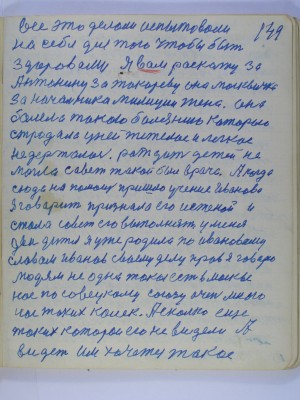 все это делали испытовали
149
на себя для того чтобы быт
здоровому Я вам раскажу за
Антонину за токореву она москвичка
за начальника милиции жена. она
болела такою болезнию которыю
страдала у ней тежолое и легкое
не держалос. рождат детей не
могла совет такой был врача. А когда
сюда на помощ пришло учение Иванова
я говарит признала его истеной и
стала совет его выполнят у меня
два детя я уже родила по ивановому
словам Иванов своему делу прав я говорю
людям не одна такая есть в москве
но и по совецкому союзу очен много
таких колек. А сколко еще
таких которои его не видели А
видет им хочется такое